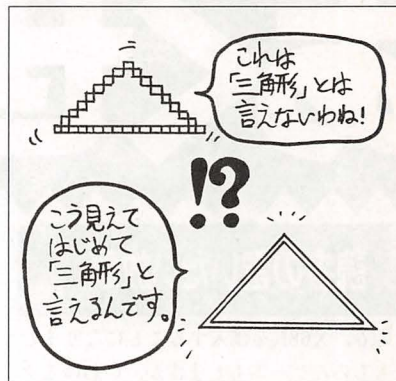 これは
「三角形」とは
言えないわね!
!?
こう見えて
はじめて
「三角形」と
言えるんです。